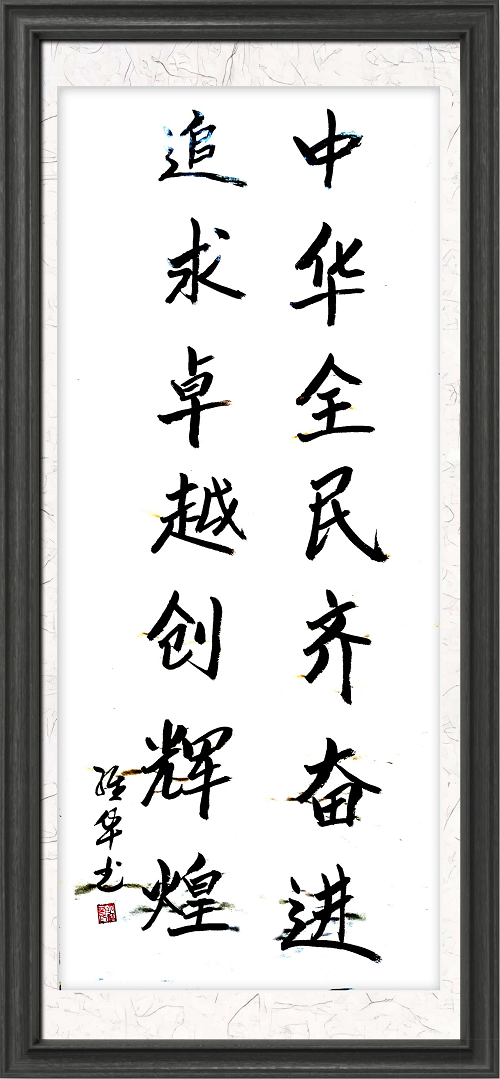 中华全民齐奋进
追求卓越创辉煌